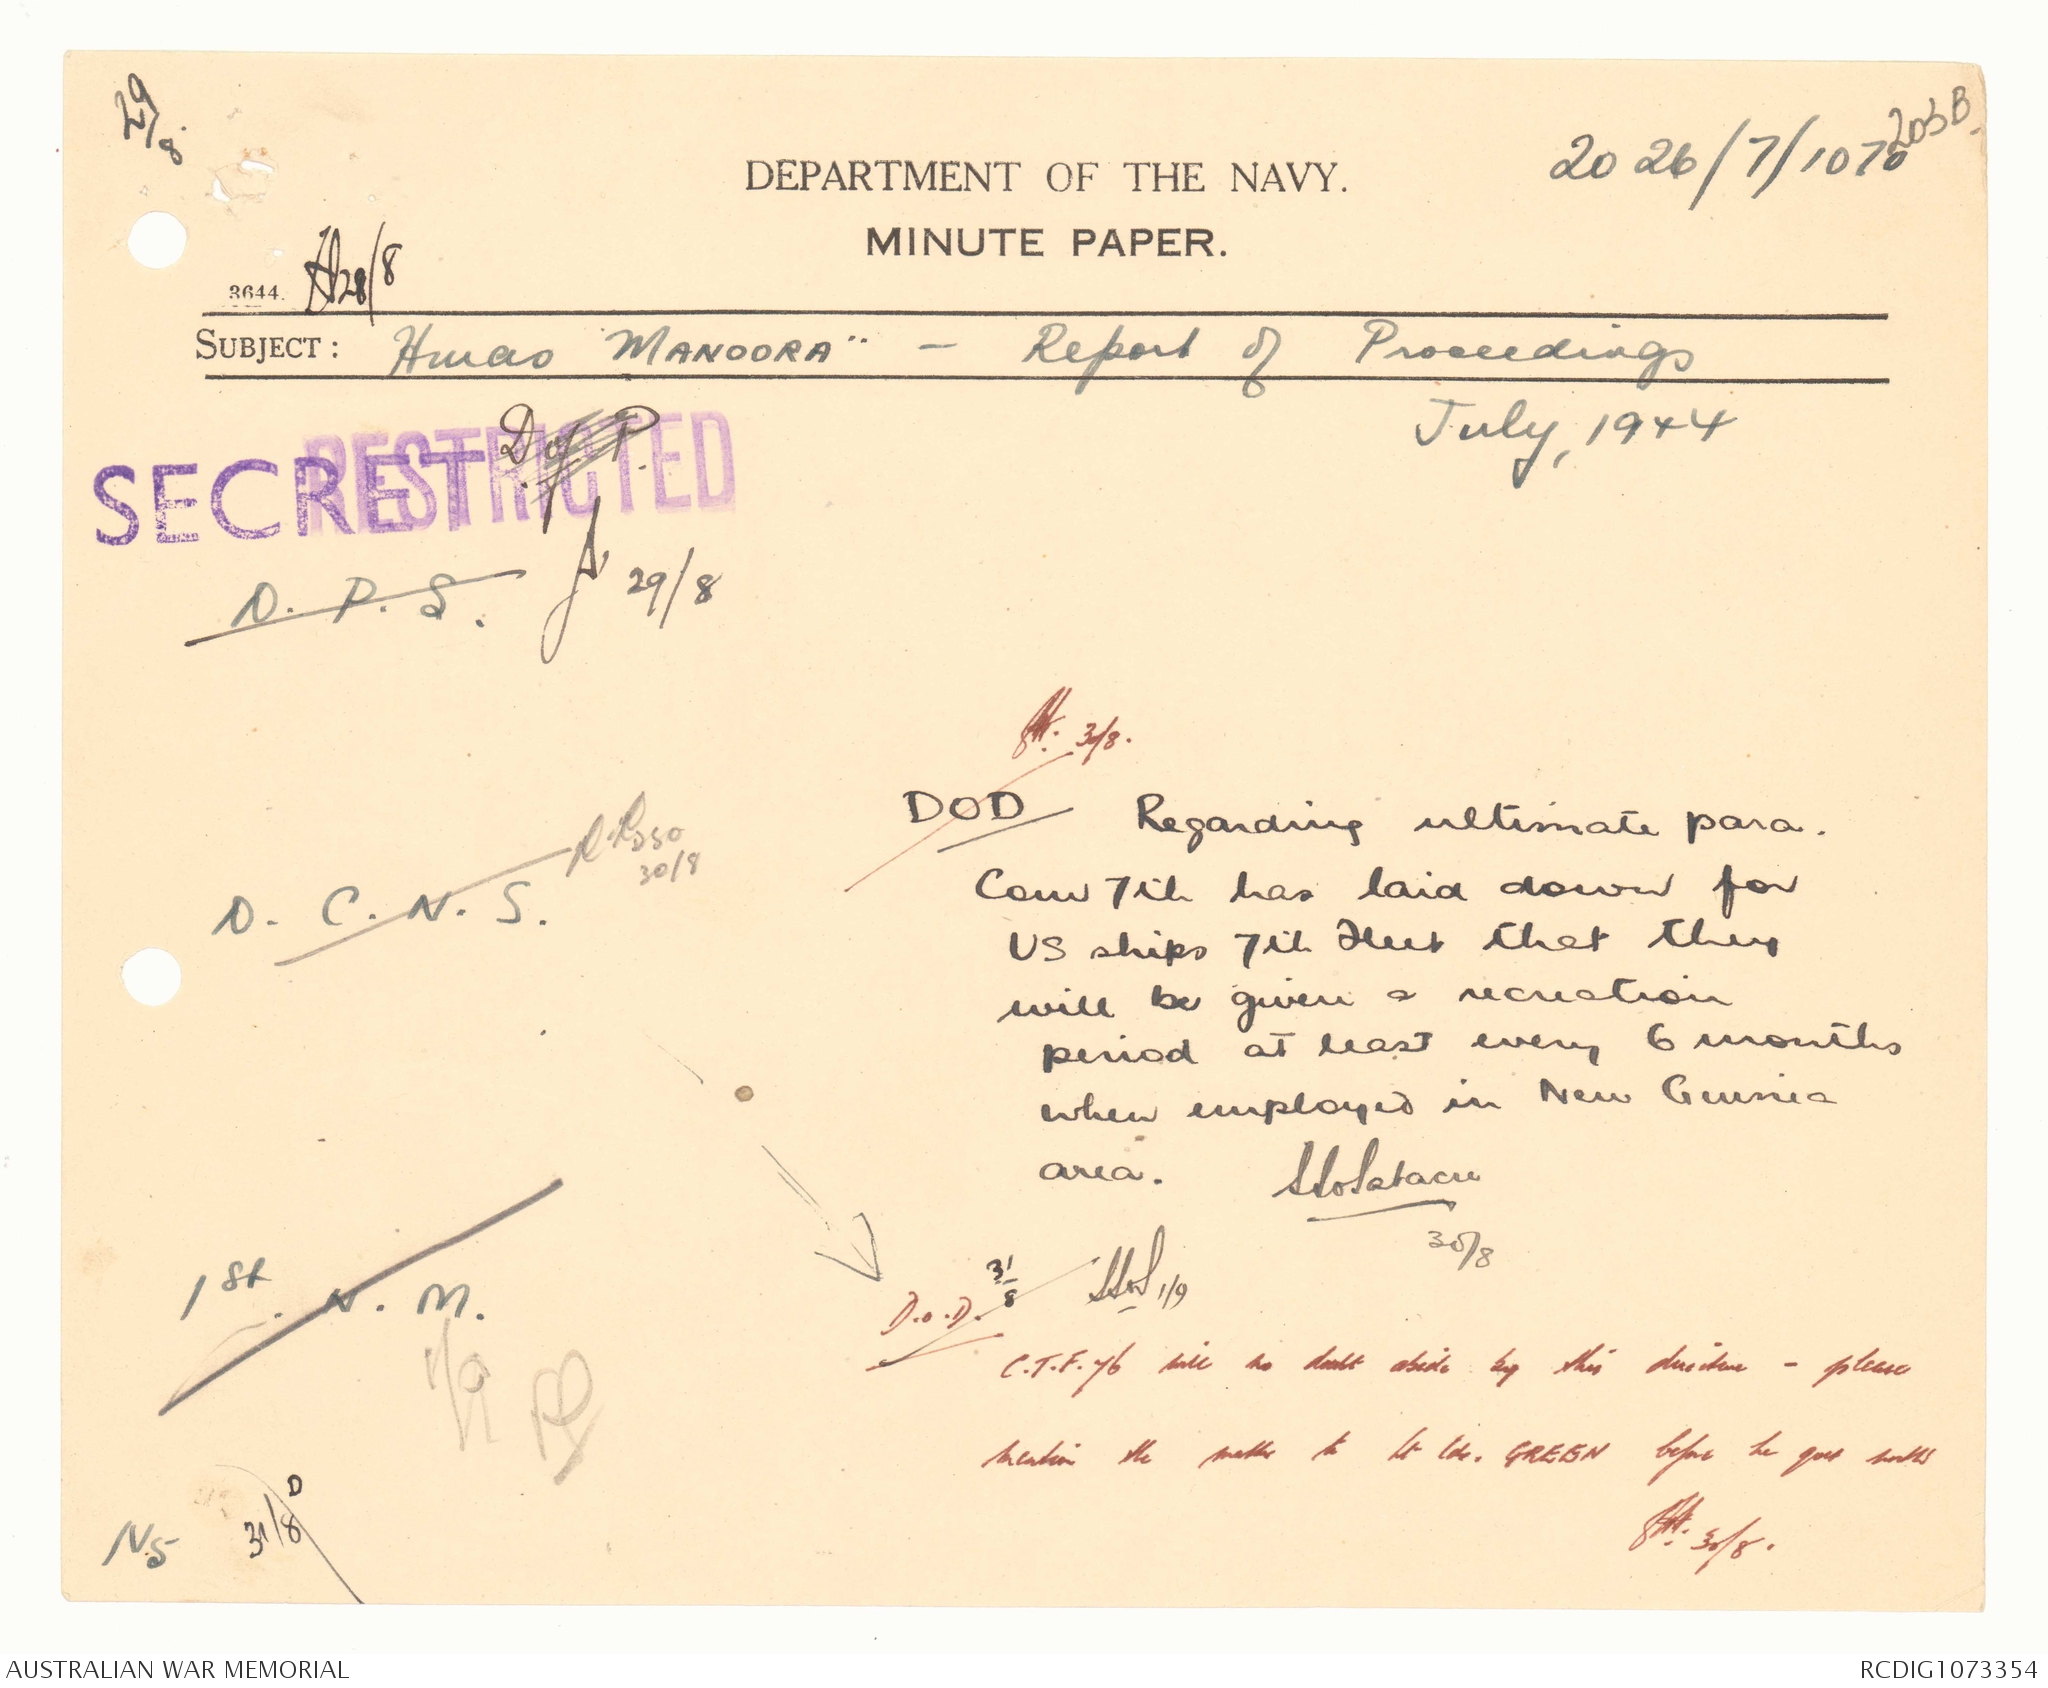 29/8
203B
2026/7/1070
DEPARTMENT OF THE NAVY.
MINUTE PAPER.
3644. 28/8
SUBJECT: HMAS "MANOORA" - Report of Proceedings
July, 1944
SECRET RESTRICTED
D of P.
D. P. S. 29/8
30/8.
DOD Regarding ultimate para.
Com 7th has laid down for
US ships 7th Fleet that they
will be given a recreation
period at least every 6 months
when employed in New Guinea
area.
30/8
30/8
D. C. N. S.
D.O.D. 31/8 1/9
1st. N. M.
1/9
C.T.F. 76 will no doubt abide by this directive - please
mention the matter to Lt Cdr. GREEN before he goes north
30/8.
NS 31/8 D
AUSTRALIAN WAR MEMORIAL
RCDIG1073354